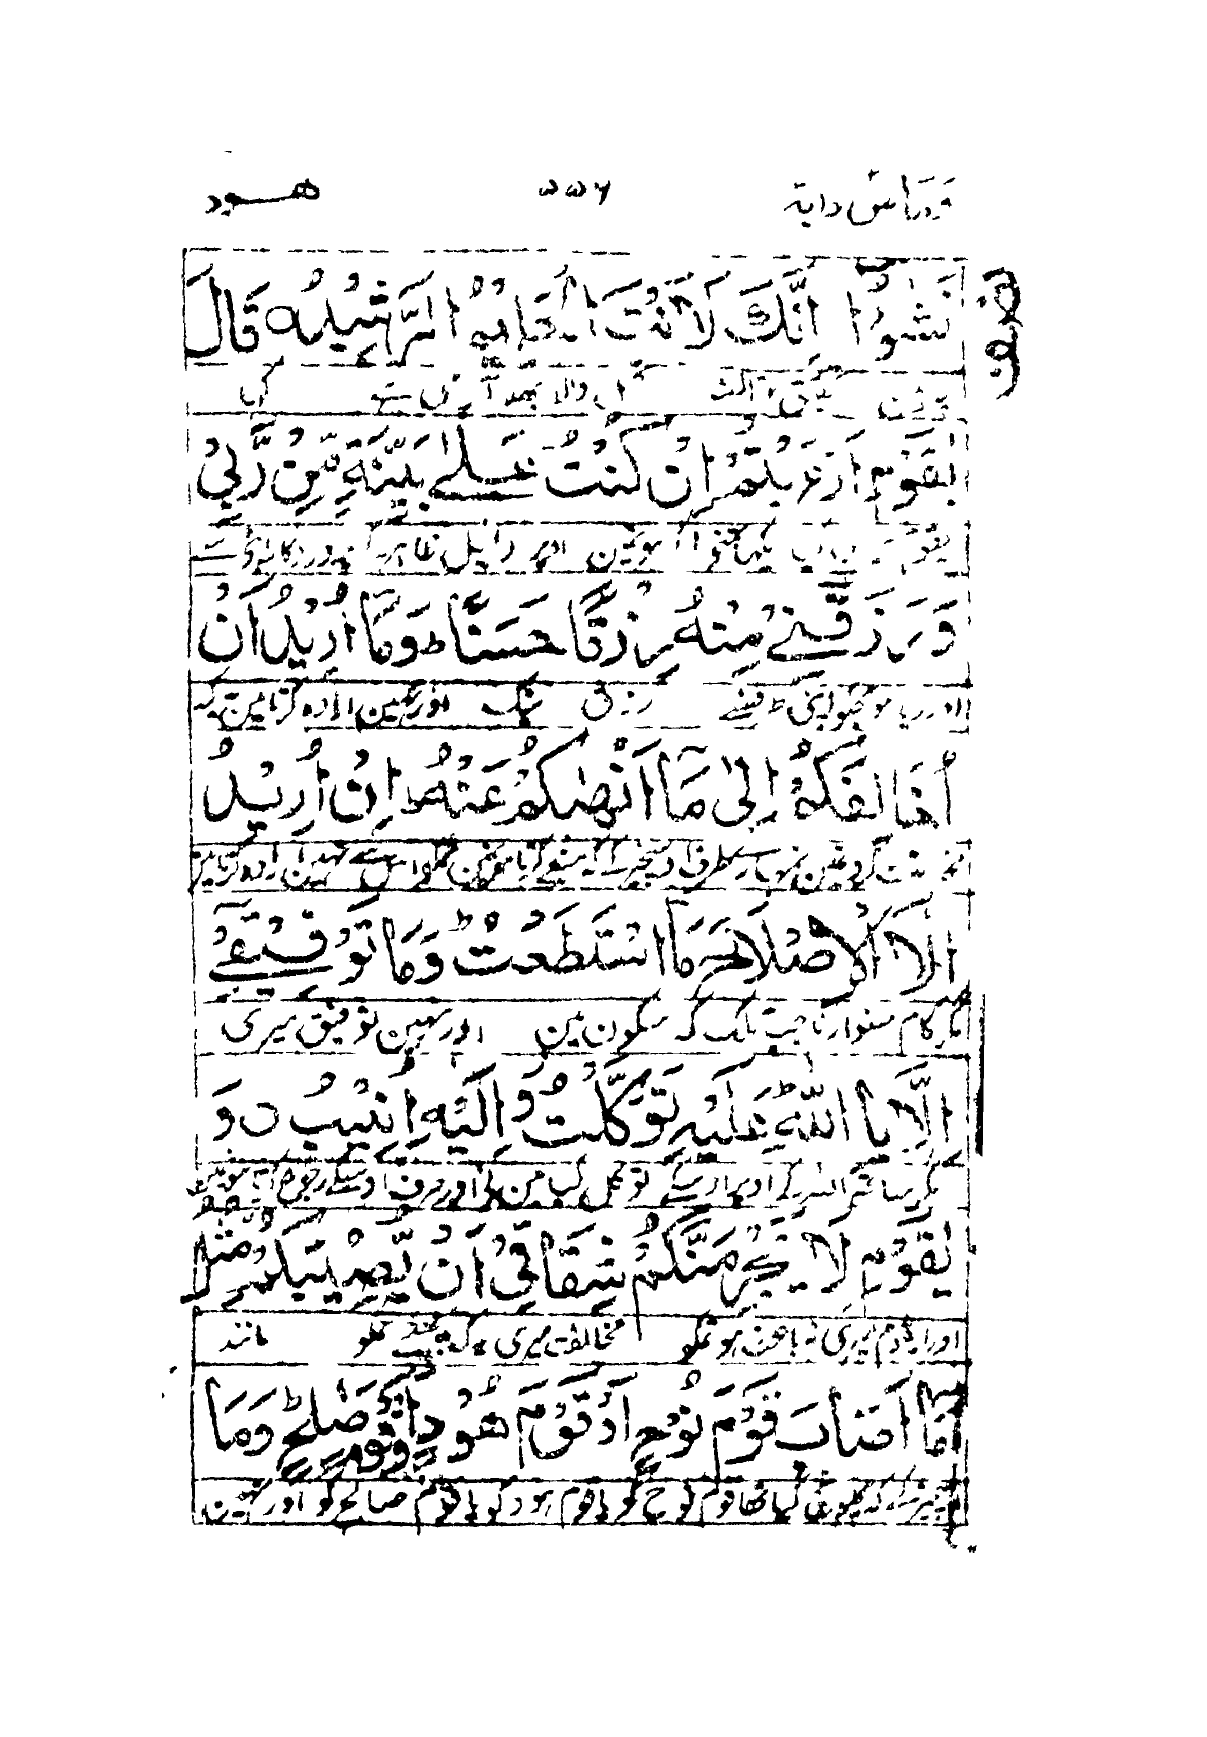 ومامن دابة ۵۵۶ هود
نَشٰٓؤُا اِنَّكَ لَاَنْتَ الْحَلِیْمُ الرَّشِیْدُ قَالَ
والا بھلا کہا
یٰقَوْمِ اَرَءَیْتُمْ اِنْ كُنْتُ عَلٰے بَیِّنَةٍ مِّنْ رَّبِّیْ
اے قوم ہوں مین اوپر دلیل ظاہر کے پروردگار اپنے سے
وَ رَزَقَنِیْ مِنْهُ رِزْقًا حَسَنًا ط وَمَاۤ اُرِیْدُ اَنْ
اور دیا مجھکو اپنی طرف سے رزق نیک اور نہین ارادہ کرتا مین یہ کہ
اُخَالِفَكُمْ اِلٰی مَاۤ اَنْهٰىكُمْ عَنْهُ ط اِنْ اُرِیْدُ
کرون مین طرف منع کرتا ہون مین تمکو اس سے نہین ارادہ کرتا مین
اِلَّا الْاِصْلَاحَ مَا اسْتَطَعْتُ ط وَمَا تَوْفِیْقِیْۤ
مگر کام سنوارنا جب تلک کہ سکون مین اور نہین توفیق میری
اِلَّا بِاللّٰهِ ط عَلَیْهِ تَوَكَّلْتُ وَ اِلَیْهِ اُنِیْبُ ○ وَ
مگر ساتھ اللہ کے اوپر اسکے توکل کیا مین نے اور طرف اوسکے رجوع کرتا ہون مین
یٰقَوْمِ لَا یَجْرِمَنَّكُمْ شِقَاقِیْۤ اَنْ یُّصِیْبَكُمْ مِّثْلُ
اور اے قوم میری نہ باعث ہو تمکو مخالفت میری یہ کہ پہنچے تمکو مانند
مَاۤ اَصَابَ قَوْمَ نُوْحٍ اَوْ قَوْمَ هُوْدٍ اَوْ قَوْمَ صٰلِحٍ ط وَمَا
کہ پہونچی قوم نوح کو یا قوم ہود کو یا قوم صالح کو اور نہین